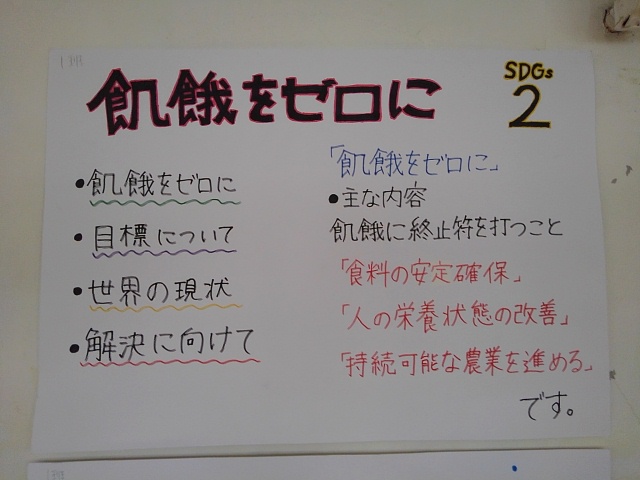 1班
飢餓をゼロに
SDGs
2
•飢餓をゼロに
•目標について
•世界の現状
•解決に向けて
「飢餓をゼロに」
•主な内容
飢餓に終止符を打つこと
「食料の安定確保」
「人の栄養状態の改善」
「持続可能な農業を進める」
です。
1班